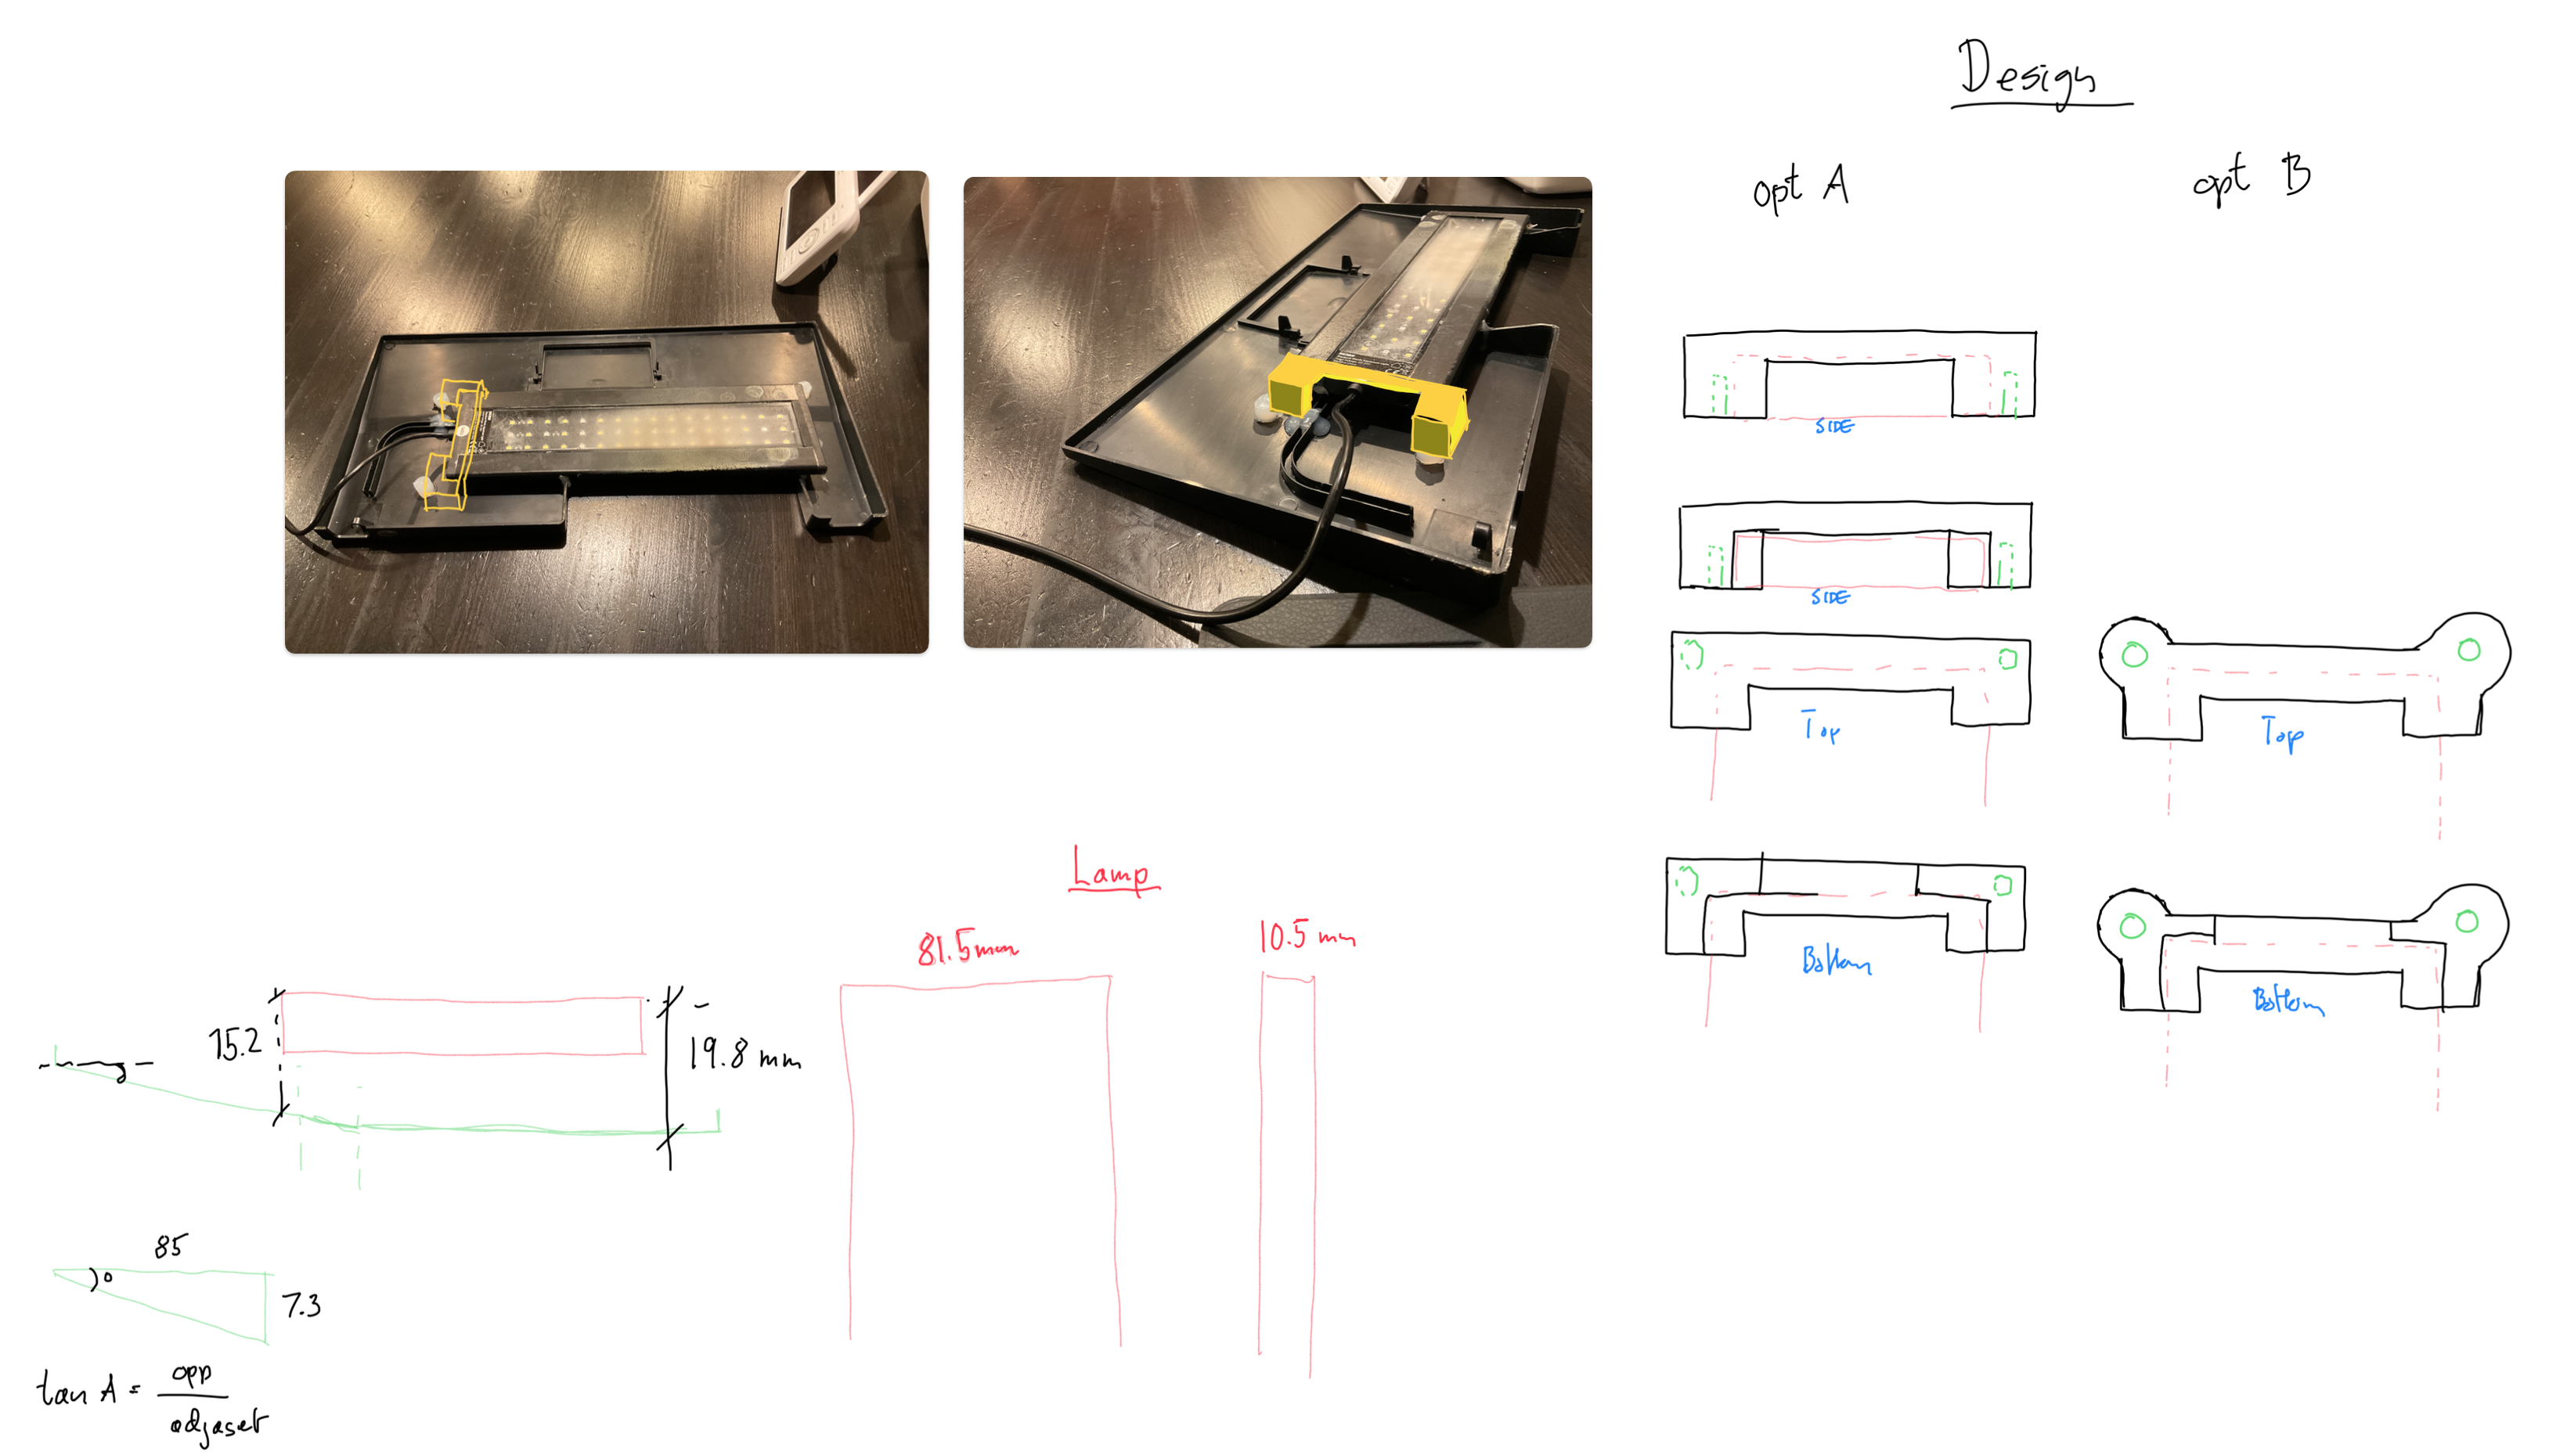 Design
opt A
opt B
SIDE
SIDE
Top
Top
Bottom
Bottom
Lamp
81.5mm
10.5 mm
15.2
19.8 mm
85
7.3
tan A = opp
adjaset